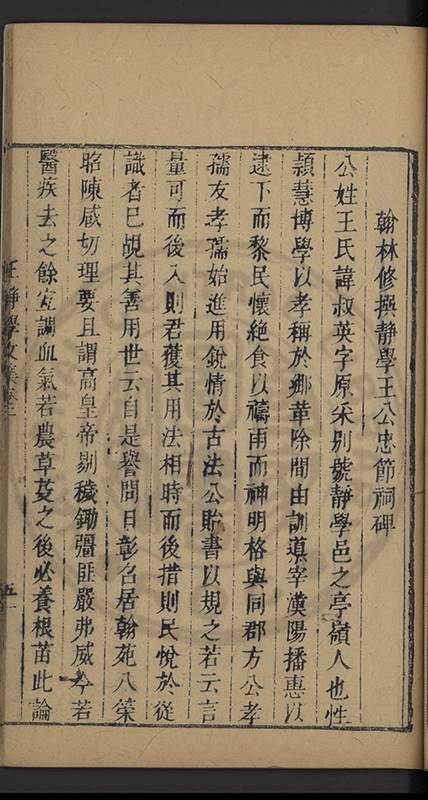 翰林修撰靜學王公忠節祠碑
公姓王氏諱叔英字原采别號靜學邑之亭嶺人也性
頴慧博學以孝稱於鄉華除間由訓導宰漢陽播惠以
逮下而黎民懷絶食以禱雨而神明格與同郡方公孝
孺友孝孺始進用銳情於古法公貽書以規之若云言
量可而後入則君獲其用法相時而後措則民悅於從
識者已覘其善用世云自是譽問日彰名居翰苑八策
昭陳咸切理要且謂高皇帝剔穢鋤彊匪嚴弗威今若
醫疾去之餘宜調血氣若農草芟之後必養根苗此論
王靜學文集卷二
五